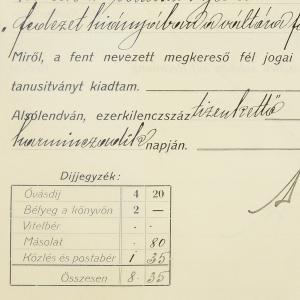 fedezet hiányában a váltóra
Miről, a fent nevezett megkereső fél jogai
tanusítványt kiadtam.
Alsólendván, ezerkilenczszáz tizenkettő
harminczadik napján.
Díjjegyzék:
Óvásdíj 4 20
Bélyeg a könyvön 2 —
Vitelbér . .
Másolat . 80
Közlés és postabér 1 35
Összesen 8 35